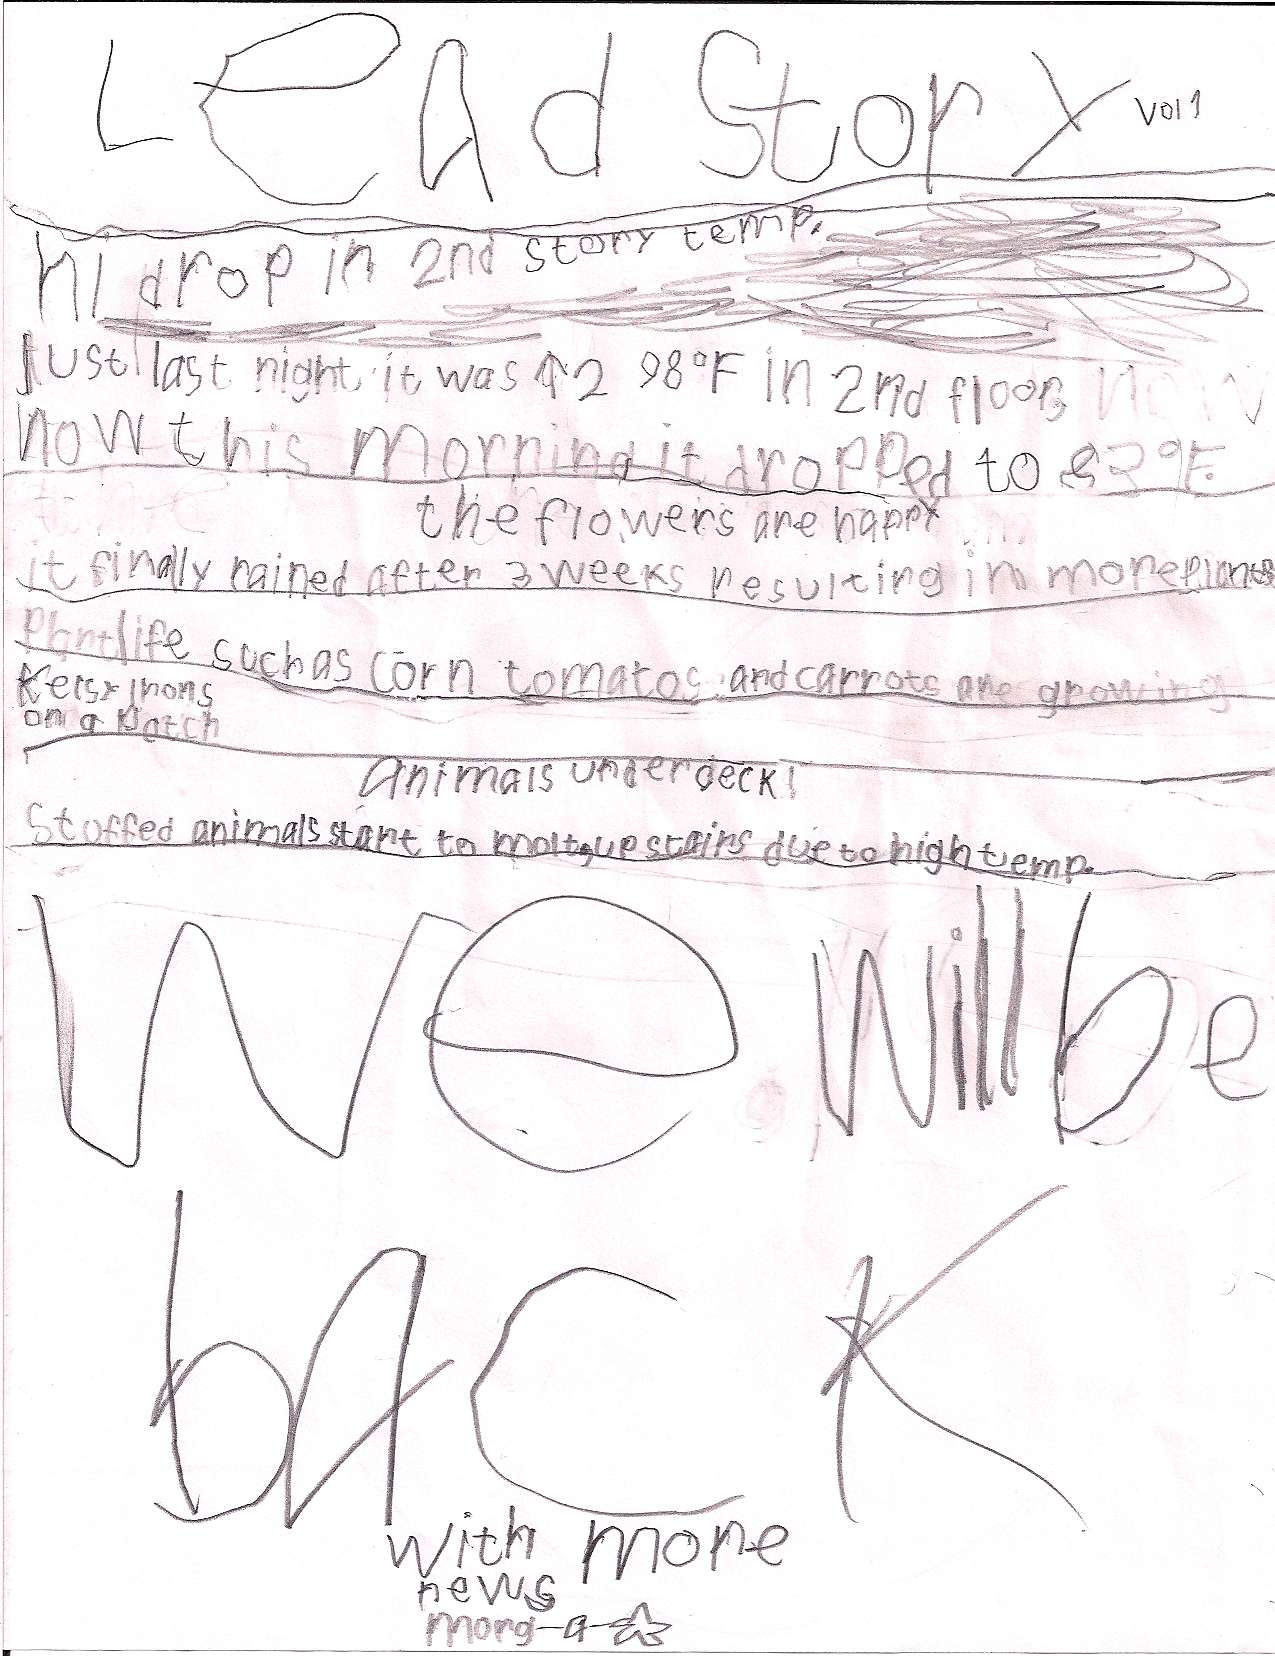 LEAd Story Vol 1
HI drop in 2nd story temp.
Just last night it was ↑2 98°F in 2nd floor now
now this morning it dropped to 83°F.
the flowers are happy
it finally rained after 3 weeks resulting in more plants
Plant life such as corn tomatos and carrots are growing
on a patch
Animals under deck!
Stoffed animals start to molt upstairs due to high temp.
We will be
back
with more
news
morg-a-☆